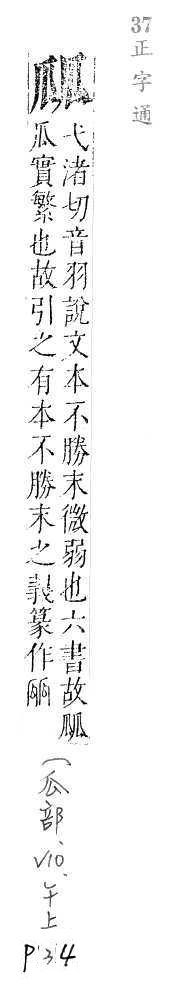 37 正字通
㼌
弋渚切音羽說文本不勝末微弱也六書故㼌
瓜實繁也故引之有本不勝末之義篆作
(瓜部、V10、午上
P'34